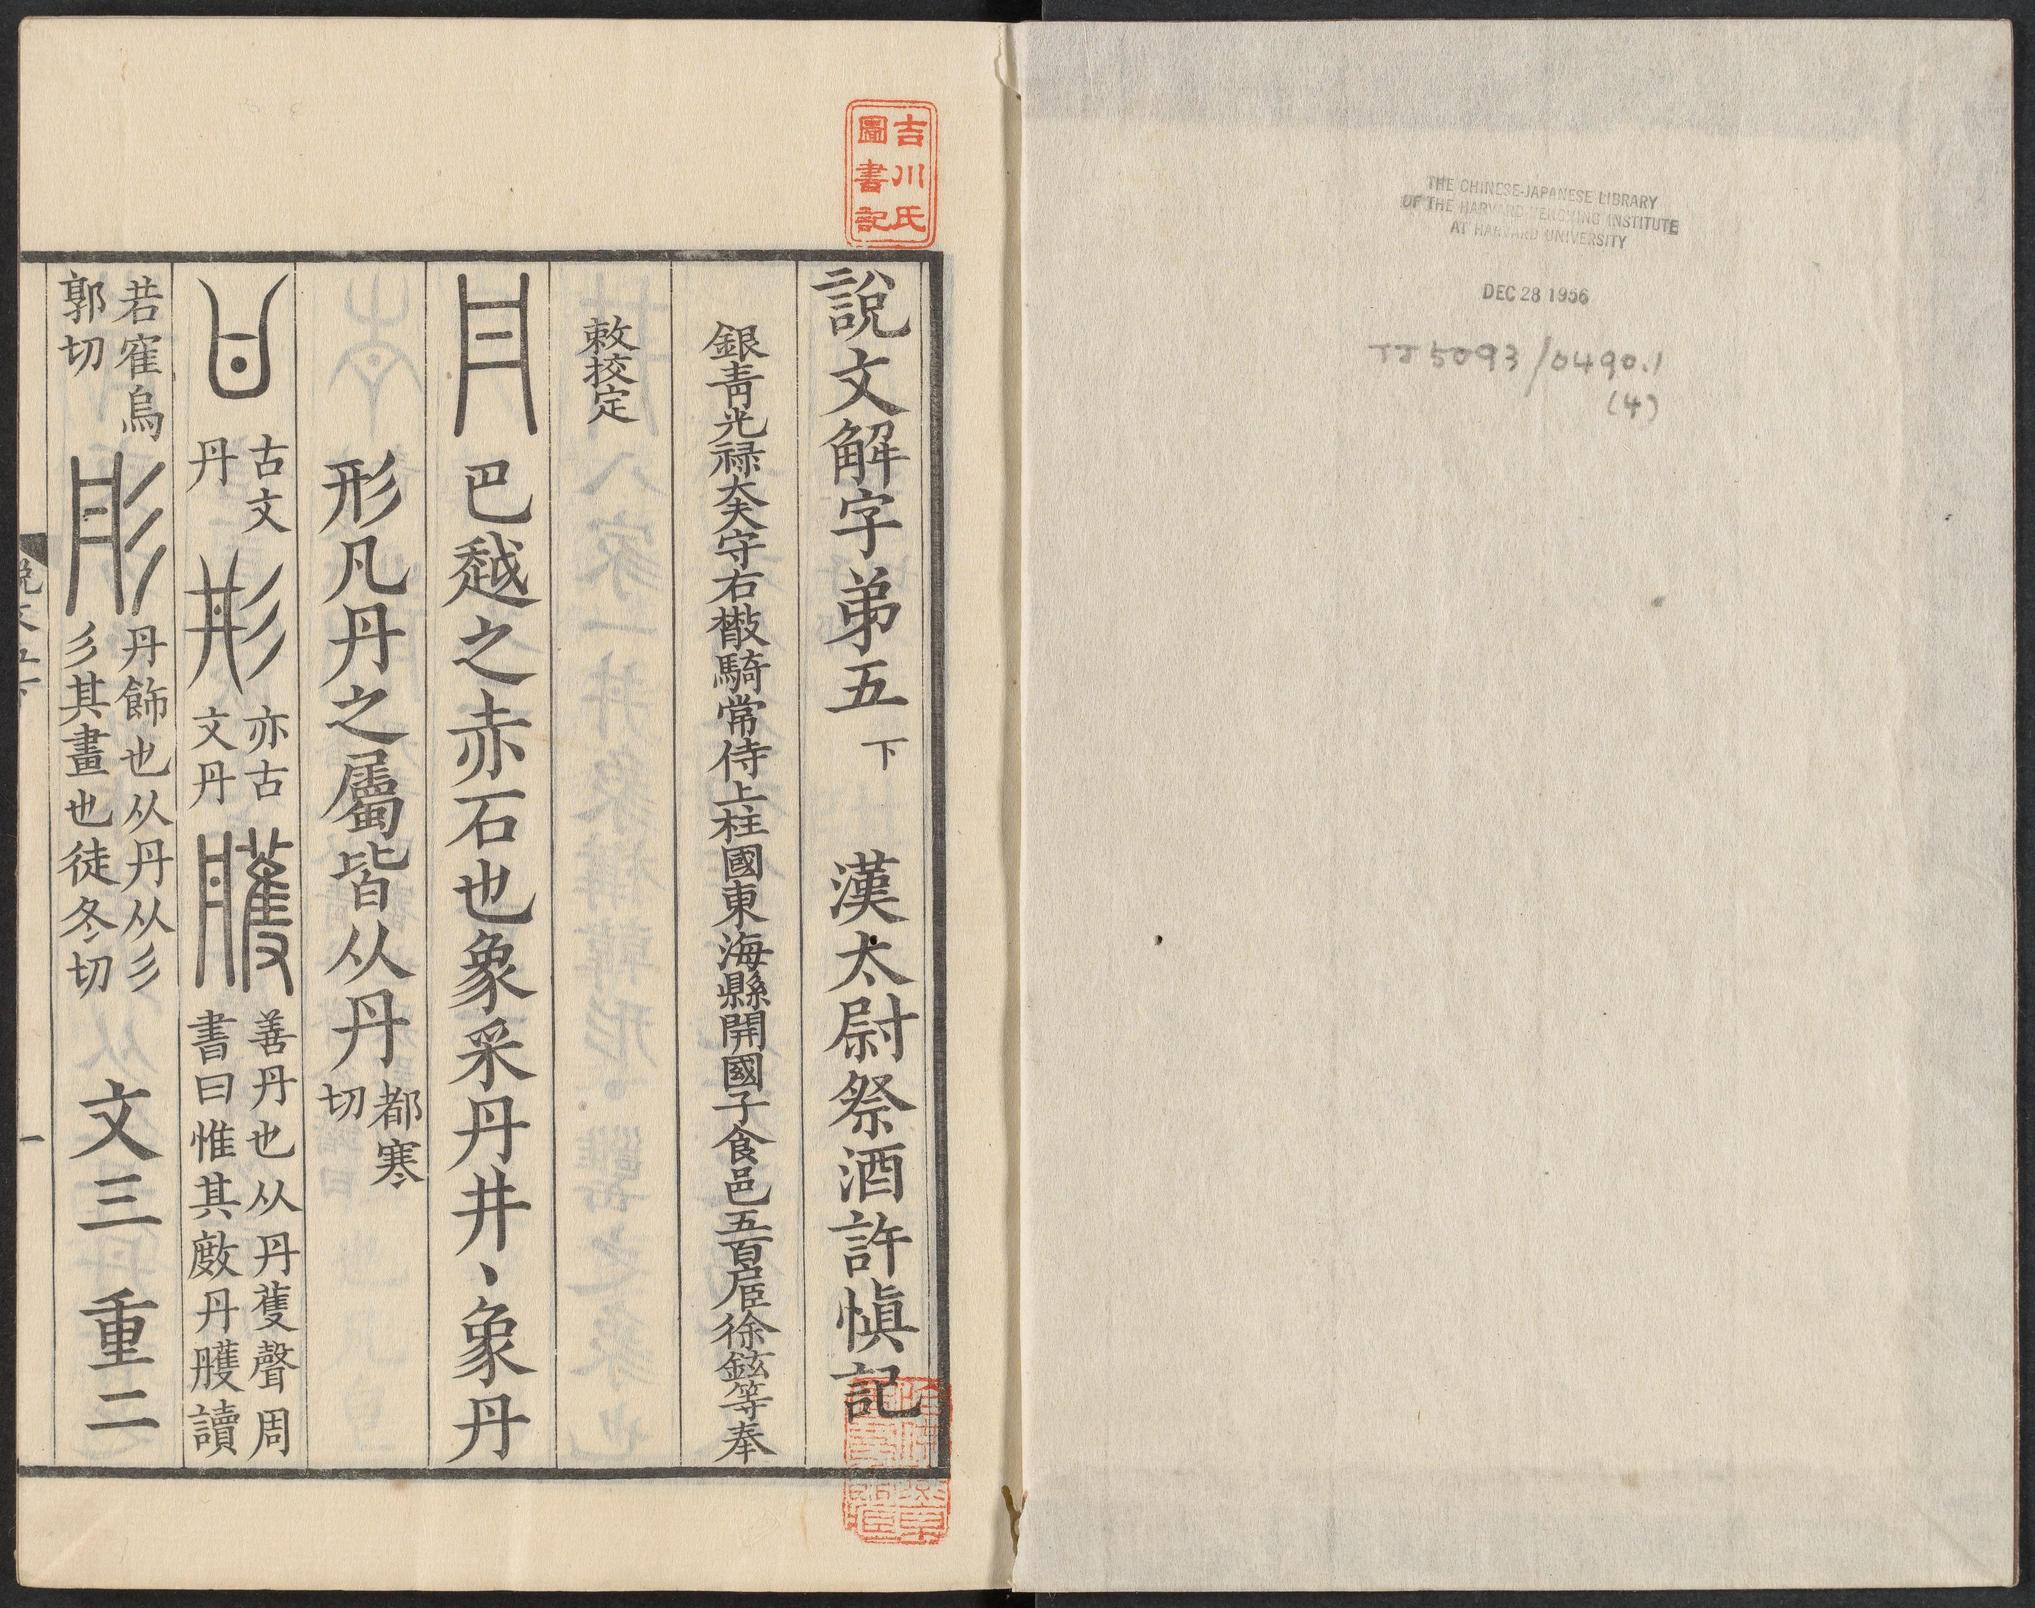 THE CHINESE-JAPANESE LIBRARY
OF THE HARVARD-YENCHING INSTITUTE
AT HARVARD UNIVERSITY
DEC 28 1956
TJ 5093/0490.1
(4)
吉川氏
圖書記
說文解字弟五下 漢太尉祭酒許慎記
銀青光祿大夫守右散騎常侍上柱國東海縣開國子食邑五百戶臣徐鉉等奉
敕校定
丹 巴越之赤石也象采丹井丶象丹
形凡丹之屬皆从丹 都寒切
古文丹 亦古文丹 雘 善丹也从丹蒦聲周書曰惟其敿丹雘讀
若隺烏郭切 彤 丹飾也从丹从彡彡其畫也徒冬切 文三 重二
一